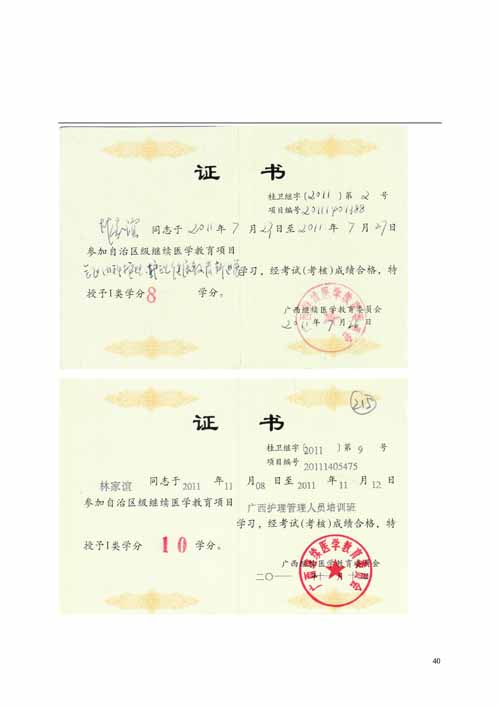 证 书
桂卫继字〔2011〕第 2 号
项目编号20111401188
同志于 2011年 7 月27日至2011年 7月29日
参加自治区级继续医学教育项目
学习，经考试(考核)成绩合格，特
授予Ⅰ类学分8 学分。
广西继续医学教育委员会
2011年7月 日
证 书
215
桂卫继字〔2011 〕第 9 号
项目编号 20111405475
林家谊 同志于2011 年11 月08 日至 2011 年11 月12 日
参加自治区级继续医学教育项目 广西护理管理人员培训班
学习，经考试(考核)成绩合格，特
授予Ⅰ类学分 10 学分。
广西继续医学教育委员会
二〇一一 年十一月十二日
40